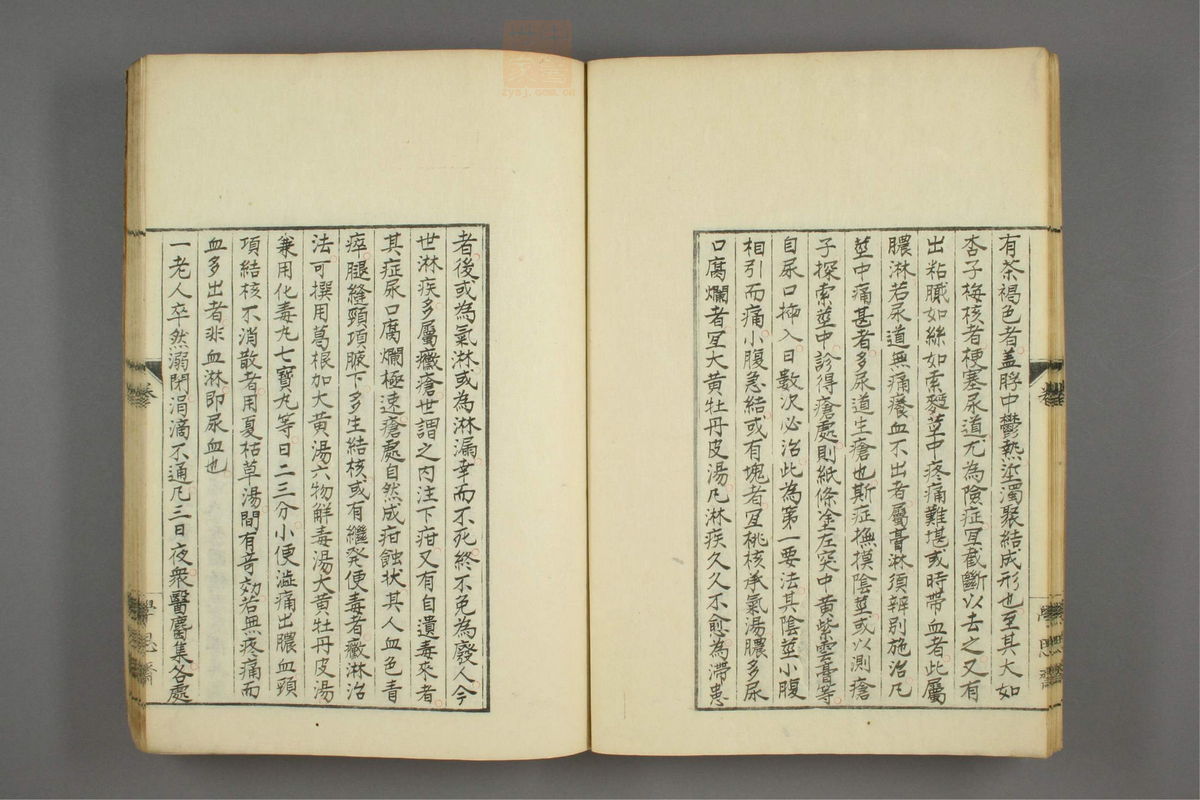 有茶褐色者蓋脬中鬱熱垽濁聚結成形也至其大如
杏子梅核者梗塞尿道尤為險症宜截斷以去之又有
出粘膩如絲如索麪莖中疼痛難堪或時帶血者此屬
膿淋若尿道無痛癢血不出者屬膏淋須辨別施治凡
莖中痛甚者多尿道生瘡也斯症撫摸陰莖或以測瘡
子探索莖中診得瘡處則紙條塗左突中黄紫雲膏等
自尿口極入日數次必治此為第一要法其陰莖小腹
相引而痛小腹急結或有塊者宜桃核承氣湯膿多尿
口腐爛者宜大黄牡丹皮湯凡淋疾久久不愈為滯患
者後或為氣淋或為淋漏幸而不死終不免為廢人今
世淋疾多屬黴瘡世謂之內注下疳又有自遺毒來者
其症尿口腐爛極速瘡處自然成疳蝕狀其人血色青
瘁腿縫頸項腋下多生結核或有繼発便毒者黴淋治
法可撰用葛根加大黄湯六物解毒湯大黄牡丹皮湯
兼用化毒丸七寶丸等日二三分小便澁痛出膿血頸
項結核不消散者用夏枯草湯間有竒効若無疼痛而
血多出者非血淋即尿血也
一老人卒然溺閉涓滴不通凡三日夜衆醫麕集各處